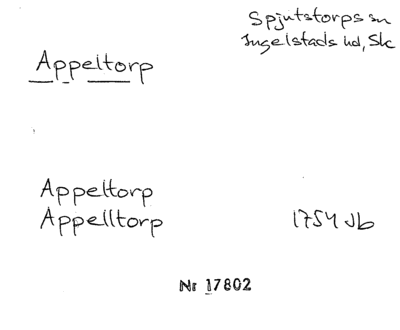 Spjutstorps sn
Ingelstads hd, Sk
Appeltorp
Appeltorp
Appelltorp 1754 Jb
Nr 17802